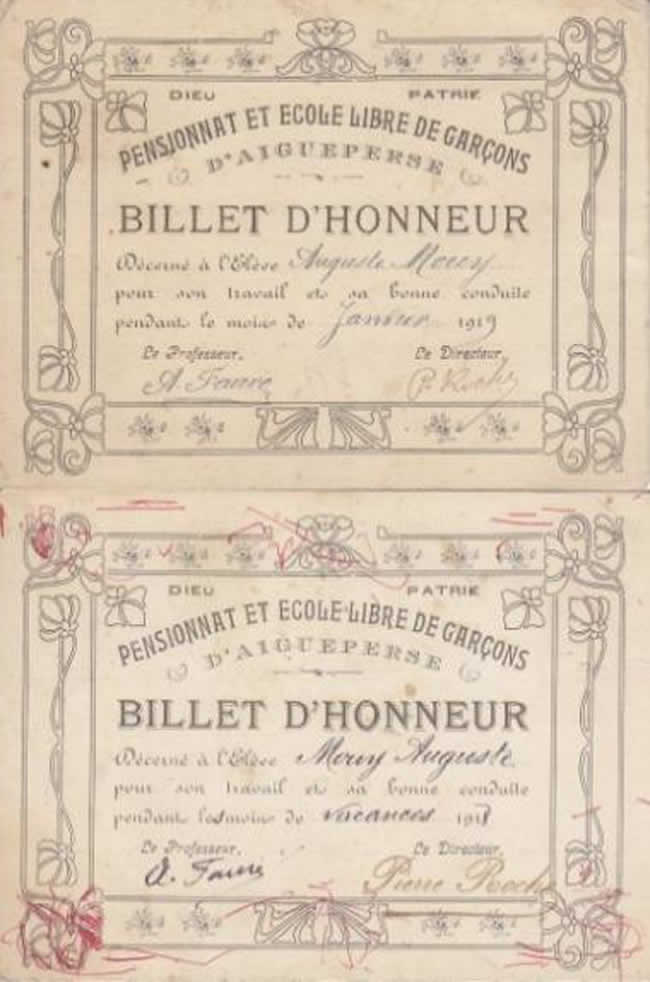 DIEU PATRIE
PENSIONNAT ET ECOLE LIBRE DE GARÇONS
D'AIGUEPERSE
BILLET D'HONNEUR
Décerné à l'Elève Auguste
pour son travail et sa bonne conduite
pendant le mois de Janvier 1919
Le Professeur, Le Directeur,
A. Faure P. Roche
DIEU PATRIE
PENSIONNAT ET ECOLE LIBRE DE GARÇONS
D'AIGUEPERSE
BILLET D'HONNEUR
Décerné à l'Elève Auguste
pour son travail et sa bonne conduite
pendant les mois de vacances
Le Professeur, Le Directeur,
A. Faure Pierre Roche